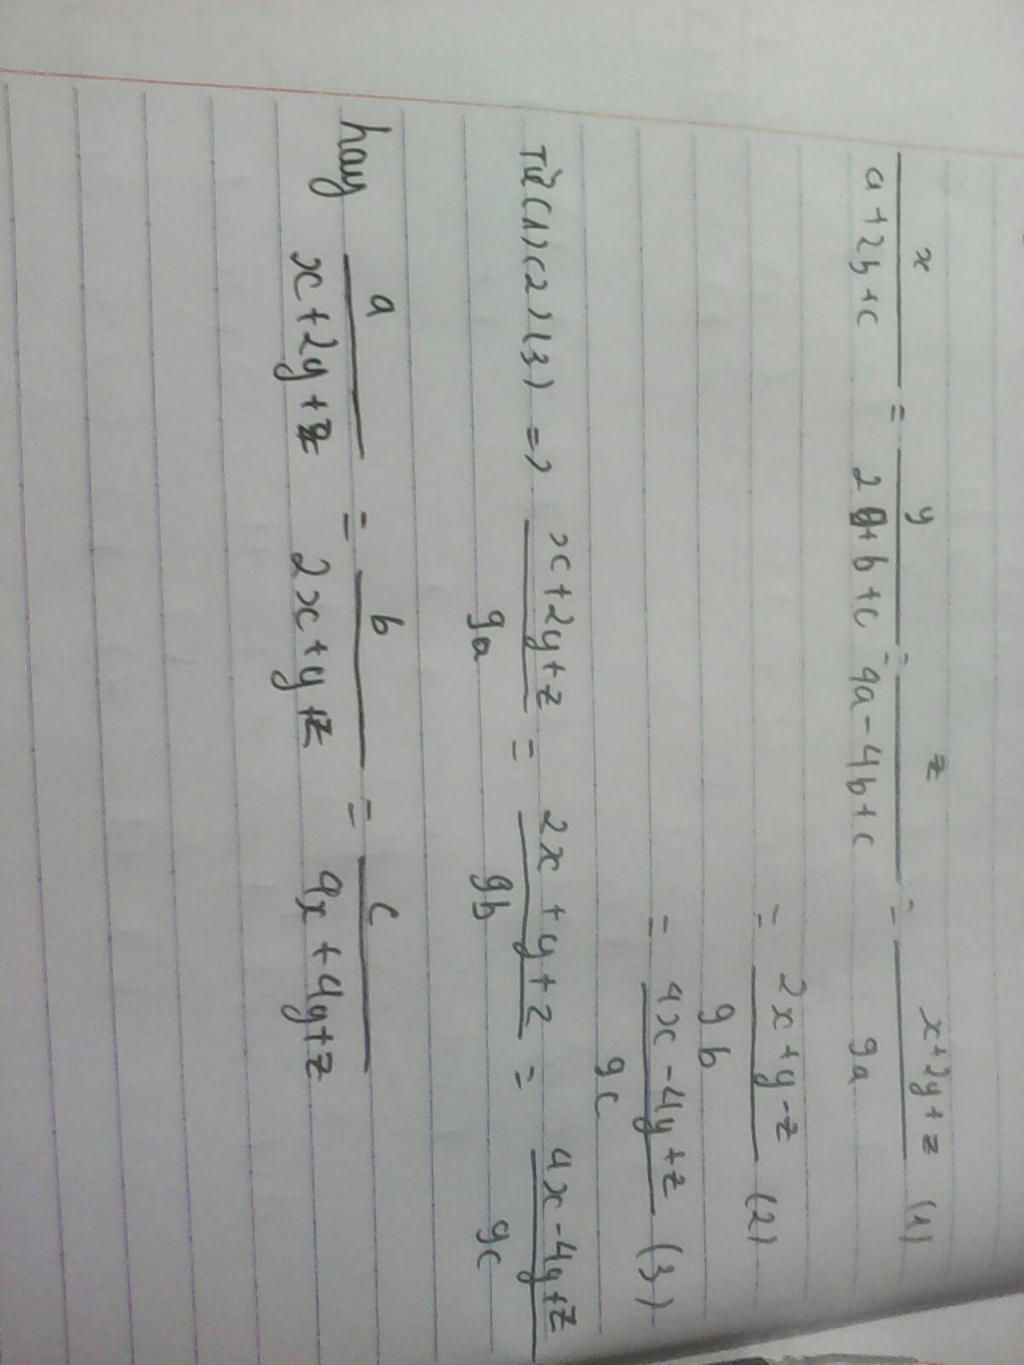 x / (a + 2b + c) = y / (2a + b + c) = z / (4a - 4b + c) = (x + 2y + z) / 9a (1)
= (2x + y - z) / 9b (2)
= (4x - 4y + z) / 9c (3)
Từ (1) (2) (3) => (x + 2y + z) / 9a = (2x + y + z) / 9b = (4x - 4y + z) / 9c
hay a / (x + 2y + z) = b / (2x + y + z) = c / (4x + 4y + z)